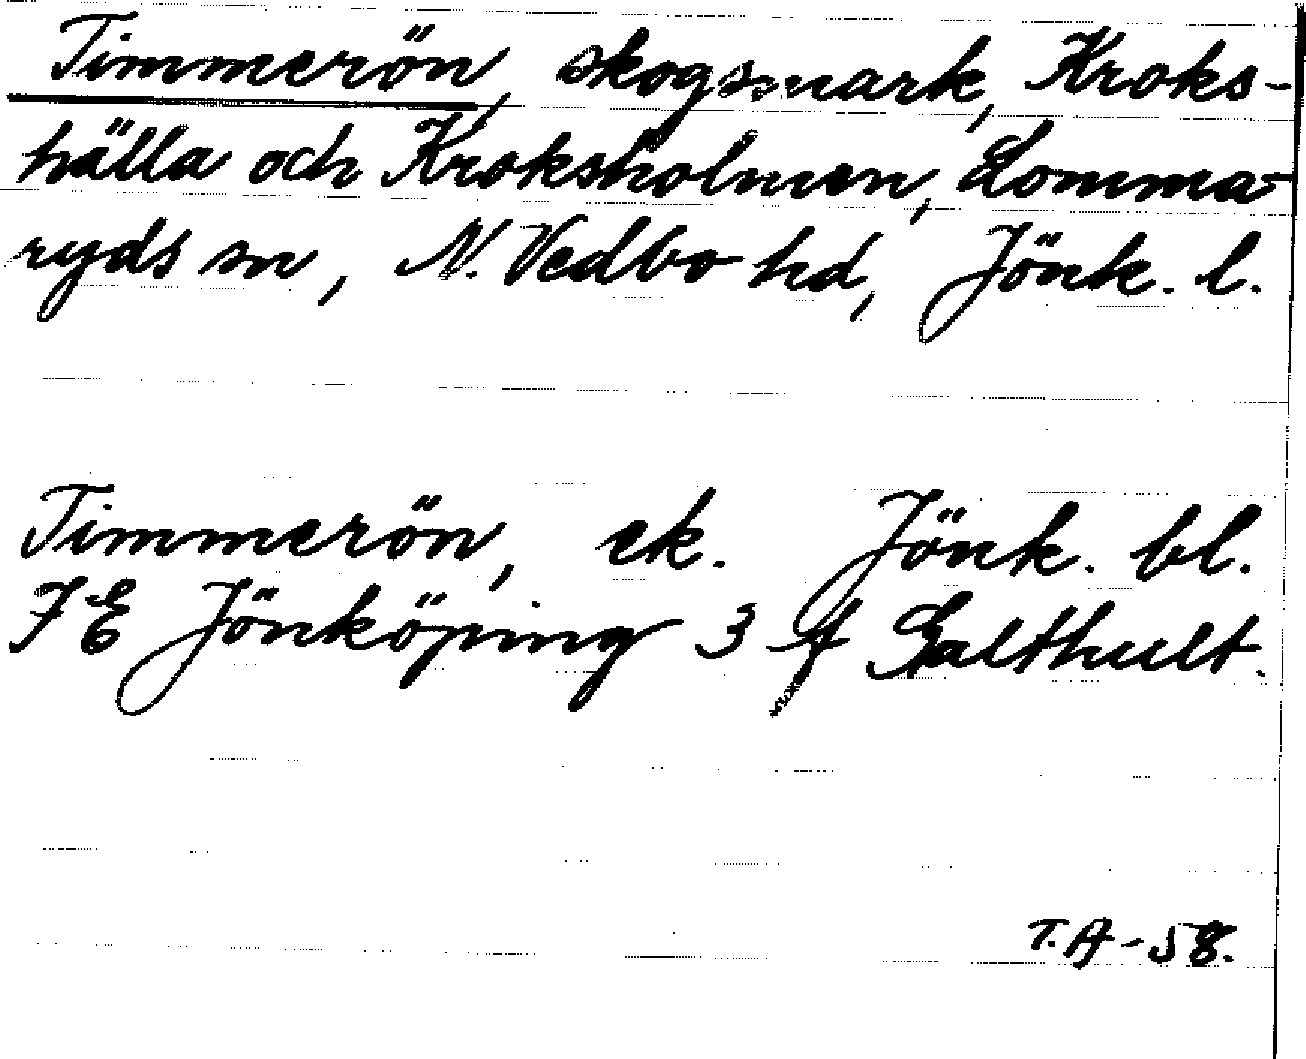 Timmerön, skogsmark, Kroks-
hälla och Kroksholmen, Lomma-
ryds sn, N. Vedbo hd, Jönk. l.
Timmerön, ek. Jönk. bl.
7E Jönköping 3 f Galthult.
T.A-58.